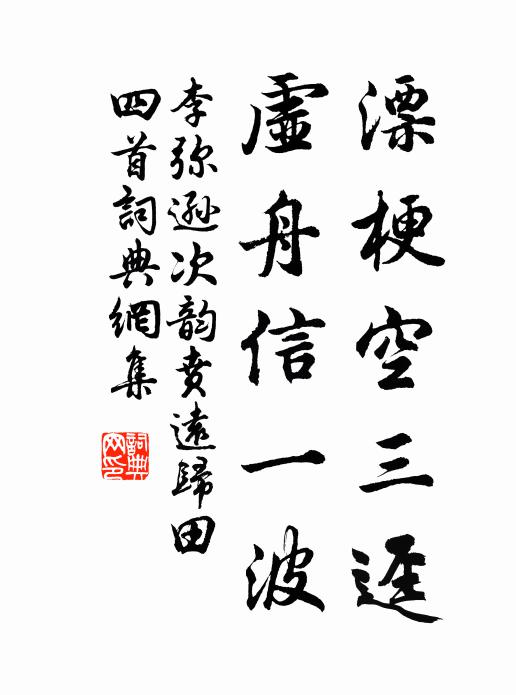 漂梗空三逕
虛舟信一波
李弥遜次韵賁遠歸田
四首詞典網集
詞典网印